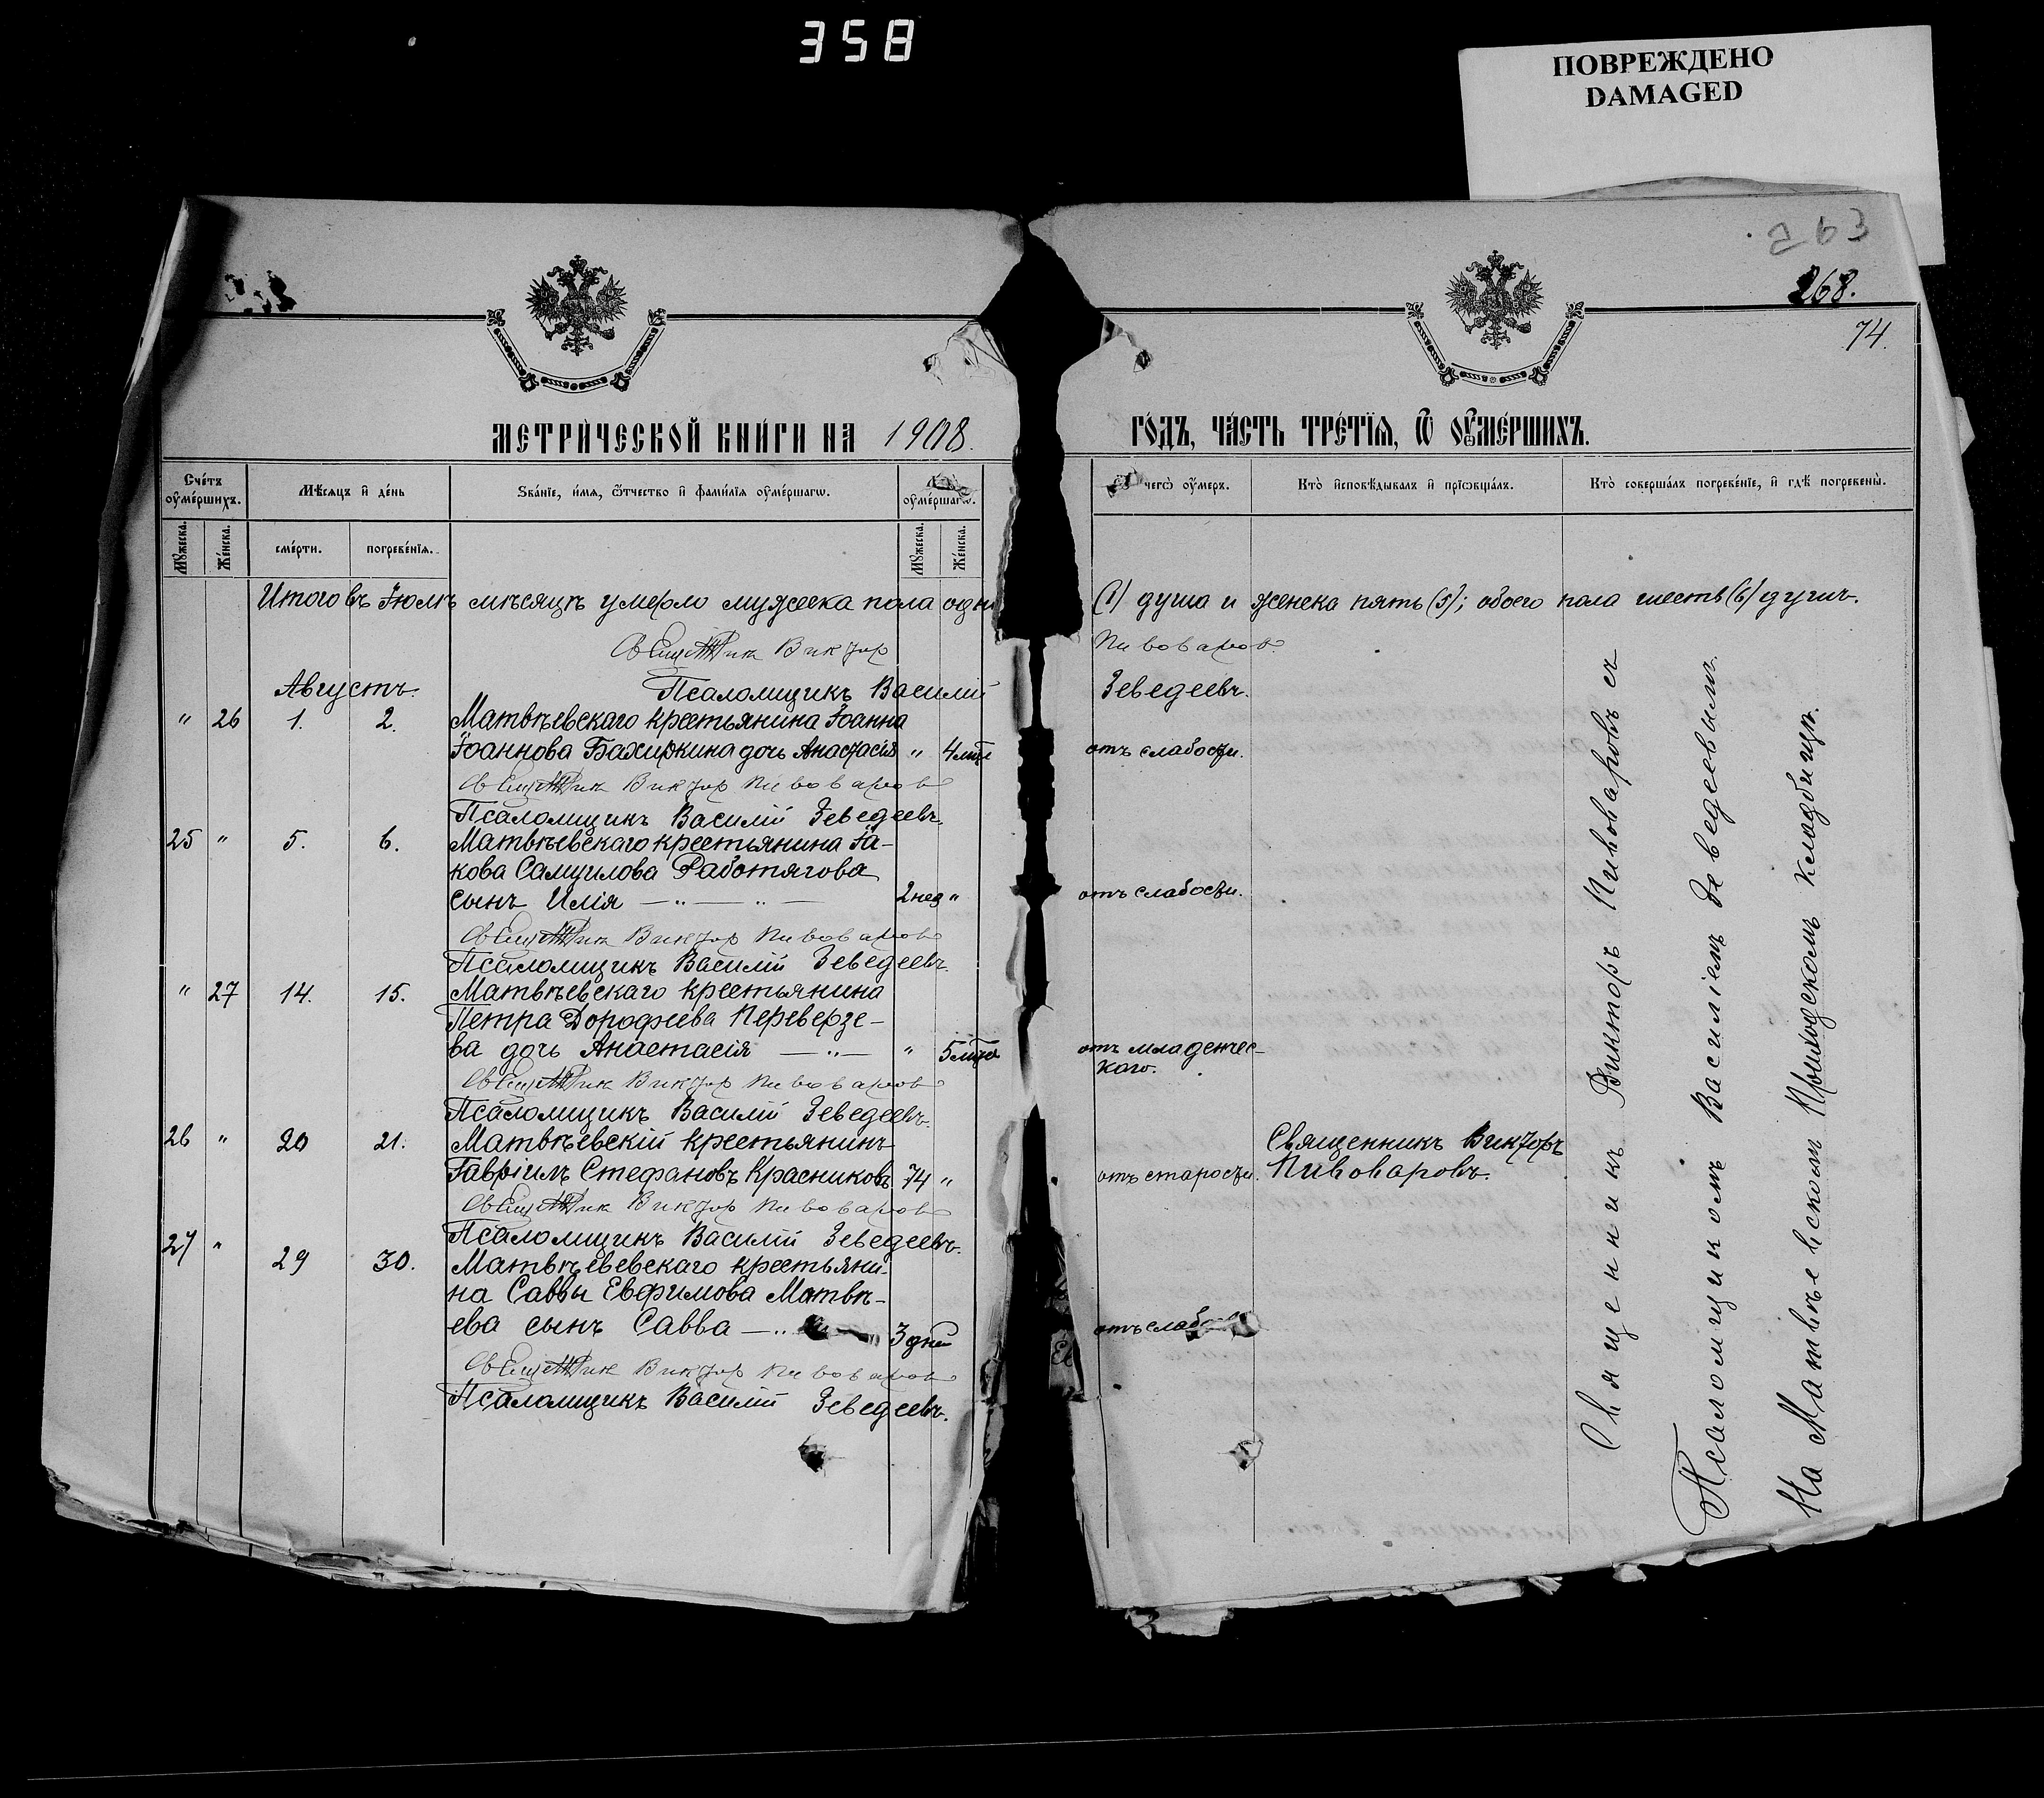 358
ПОВРЕЖДЕНО
DAMAGED
263
268.
74.
МЕТРИ́ЧЕСКОЙ КНИ́ГИ НА 1908.
ГО́ДЪ, ЧА́СТЬ ТРЕ́ТЇѦ, Ѿ ОУ҆МЕ́РШИХЪ.
Сче́тъ оу҆ме́ршихъ.
Мѣ́сяцъ и҆ де́нь
Ѕва́нїе, и҆́мѧ, ѻ҆́тчество и҆ фами́лїѧ оу҆ме́ршагѡ.
оу҆ме́ршагѡ.
чегѡ̀ оу҆́меръ.
Кто̀ и҆сповѣ́дывалъ и҆ прїѡбща́лъ.
Кто̀ соверша́лъ погребе́нїе, и҆ гдѣ̀ погребены̀.
Мꙋ́жеска.
Же́нска.
сме́рти.
погребе́нїѧ.
Мꙋ́жеска.
Же́нска.
Итого въ Іюлѣ мѣсяцѣ умерло мужеска пола одна (1) душа и женска пять (5); обоего пола шесть (6) душъ.
Священник Виктор Пивоваров
Августъ. Псаломщикъ Василій Зеведеевъ.
" 26 1. 2. Матвѣевскаго крестьянина Іоанна
Іоаннова Бахиркина дочь Анастасія " 4 отъ слабости.
Священник Виктор Пивоваров
Псаломщикъ Василій Зеведеевъ.
25 " 5. 6. Матвѣевскаго крестьянина Іа-
кова Самуилова Работягова
сынъ Илія — " — " — 2 нед " отъ слабости.
Священник Виктор Пивоваров
Псаломщикъ Василій Зеведеевъ.
" 27 14. 15. Матвѣевскаго крестьянина
Петра Дорофеева Переверзе-
ва дочь Анастасія — " — " 5 отъ младенчес-
каго.
Священник Виктор Пивоваров
Псаломщикъ Василій Зеведеевъ.
26 " 20 21. Матвѣевскій крестьянинъ Священникъ Викторъ
Гавріилъ Стефановъ Красниковъ 74 " отъ старости. Пивоваровъ.
Священник Виктор Пивоваров
Псаломщикъ Василій Зеведеевъ.
27 " 29 30. Матвѣевевскаго крестьяни-
на Саввы Евфимова Матвѣ-
ева сынъ Савва — " 3 дней отъ
Священник Виктор Пивоваров
Псаломщикъ Василій Зеведеевъ.
Священникъ Викторъ Пивоваровъ съ
Псаломщикомъ Василіемъ Зеведеевымъ.
На Матвѣевскомъ Приходскомъ кладбищѣ.